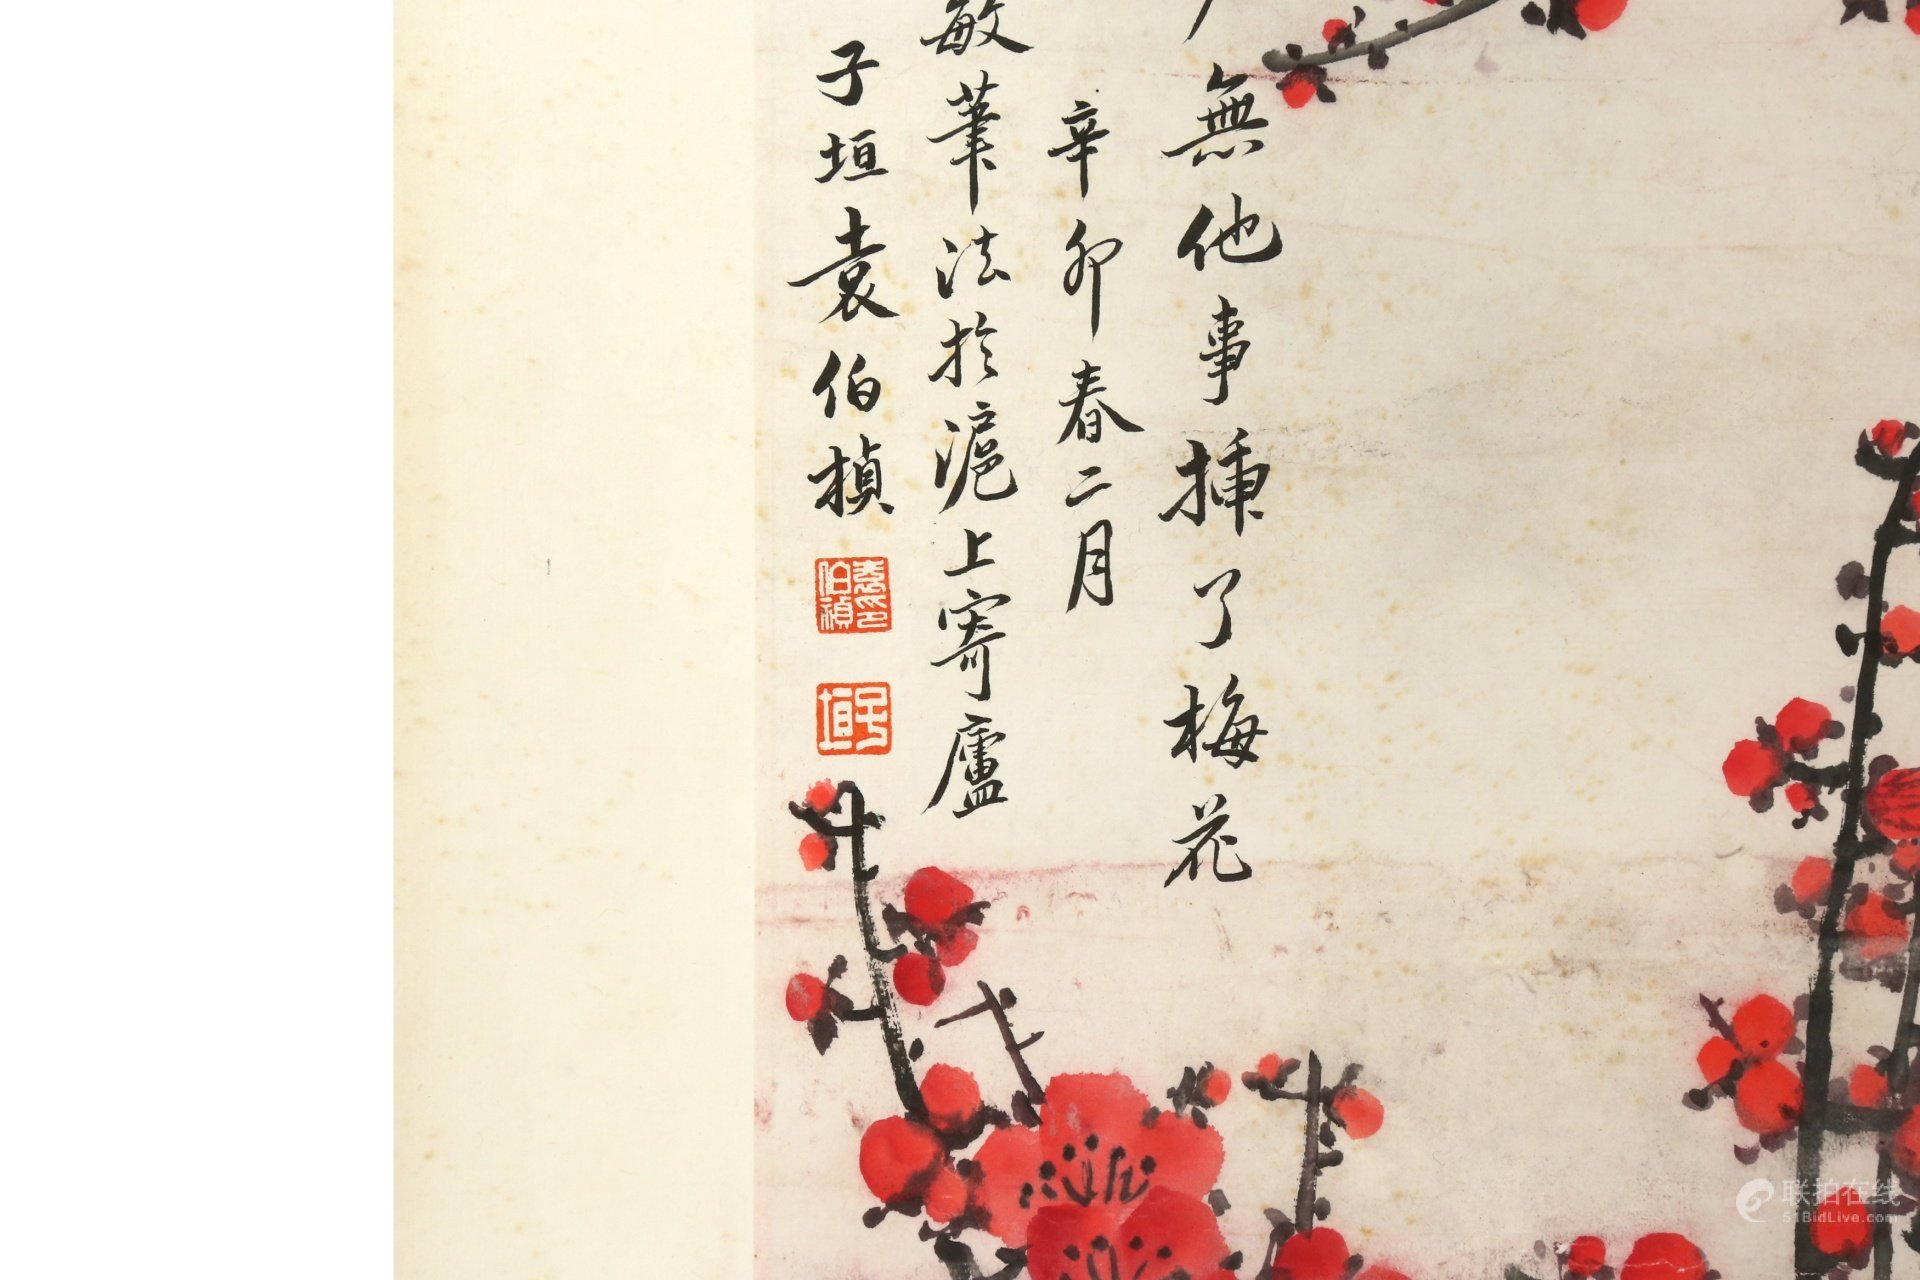 無他事插了梅花
辛卯春二月
敏筆法於滬上寄廬
子垣袁伯楨
袁印伯禎
子垣
联拍在线
51BidLive.com